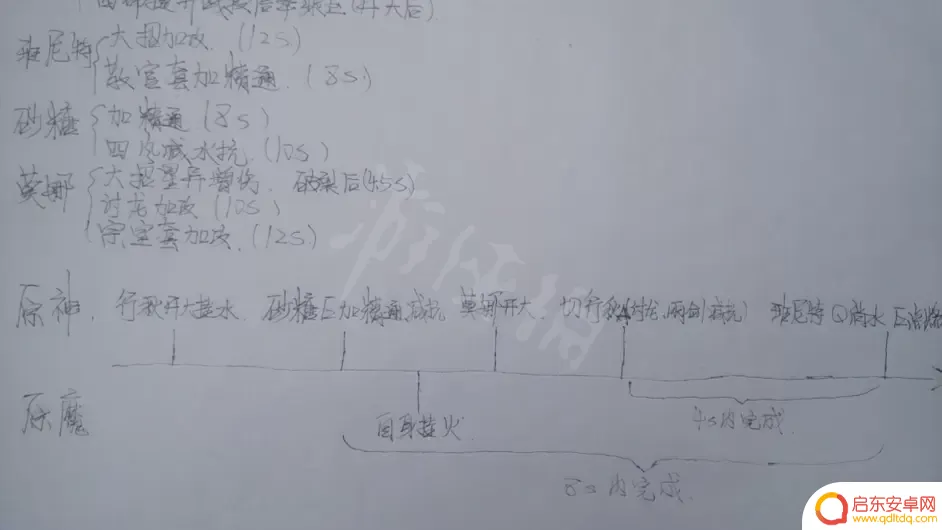 班尼特 大招加攻. (12s)
教官套加精通. (8s)
砂糖 加精通 (8s)
四风减水抗. (10s)
莫娜 大招星异增伤. 破裂后(4.5s)
讨龙加攻 (10s)
宗室套加攻. (12s)
游侠
原神. 行秋开大挂水. 砂糖E加精通减抗 莫娜开大. 切行秋 班尼特Q蒸水 E
原魔 自身挂火. 4s内完成.
8s内完成.
启东安卓网
www.qdltdq.com